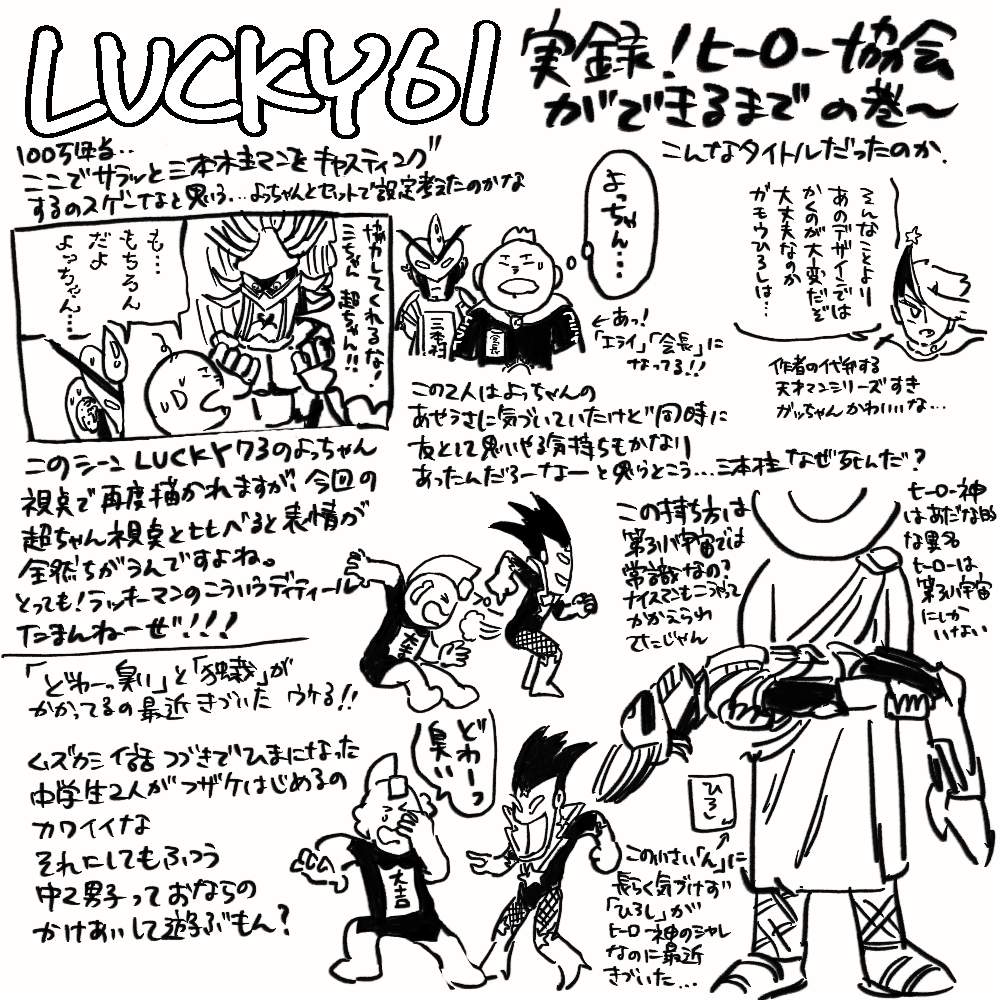 LUCKY61
実録!ヒーロー協会
ができるまでの巻〜
こんなタイトルだったのか、
100万年当..
ここでサラッと三本柱マンをキャスティング
するのスゲーなと思いう…よっちゃんとセットで設定考えたのかな
協力してくれるな!
三ちゃん 超ちゃん!!
も…
もちろん
だよ
よっちゃん…
よっちゃん…
三本柱
会長
←あっ!
「エライ」「会長」に
なってる!!
そんなことより
あのデザインでは
かくのが大変だぞ
大丈夫なのか
ガモウひろしは…
作者の代弁する
天才マンシリーズすき
ガッちゃんかわいいな…
この2人はよっちゃんの
あやうさに気づいていたけど同時に
友として思いやる気持ちもかなり
あったんだろーなーと思うとこう…三本柱なぜ死んだ?
このシーン LUCKY73のよっちゃん
視点で再度描かれますが、今回の
超ちゃん視点とともべると表情が
全然ちがうんですよね。
とっても!ラッキーマンのこういうディティール
たまんねーぜ!!!
「どわーっ臭い」と「独裁」が
かかってるの最近きづいた ウケる!!
ムズカシイ話つづきでひまになった
中学生2人がフザケはじめるの
カワイイな
それにしてもふつう
中2男子っておならの
かけあいして遊ぶもん?
大吉
どわーっ
臭い
大吉
この持ち方は
第31バ宇宙では
常識なの?
ナイスマンもこうやって
かかえられ
てたじゃん
ヒーロー神
はあだな的
な異名
ヒーローは
第31バ宇宙
にしか
いけない
ひろし
この小さい「ん」に
長らく気づけず
「ひろし」が
ヒーロー神のシャレ
なのに最近
きづいた…